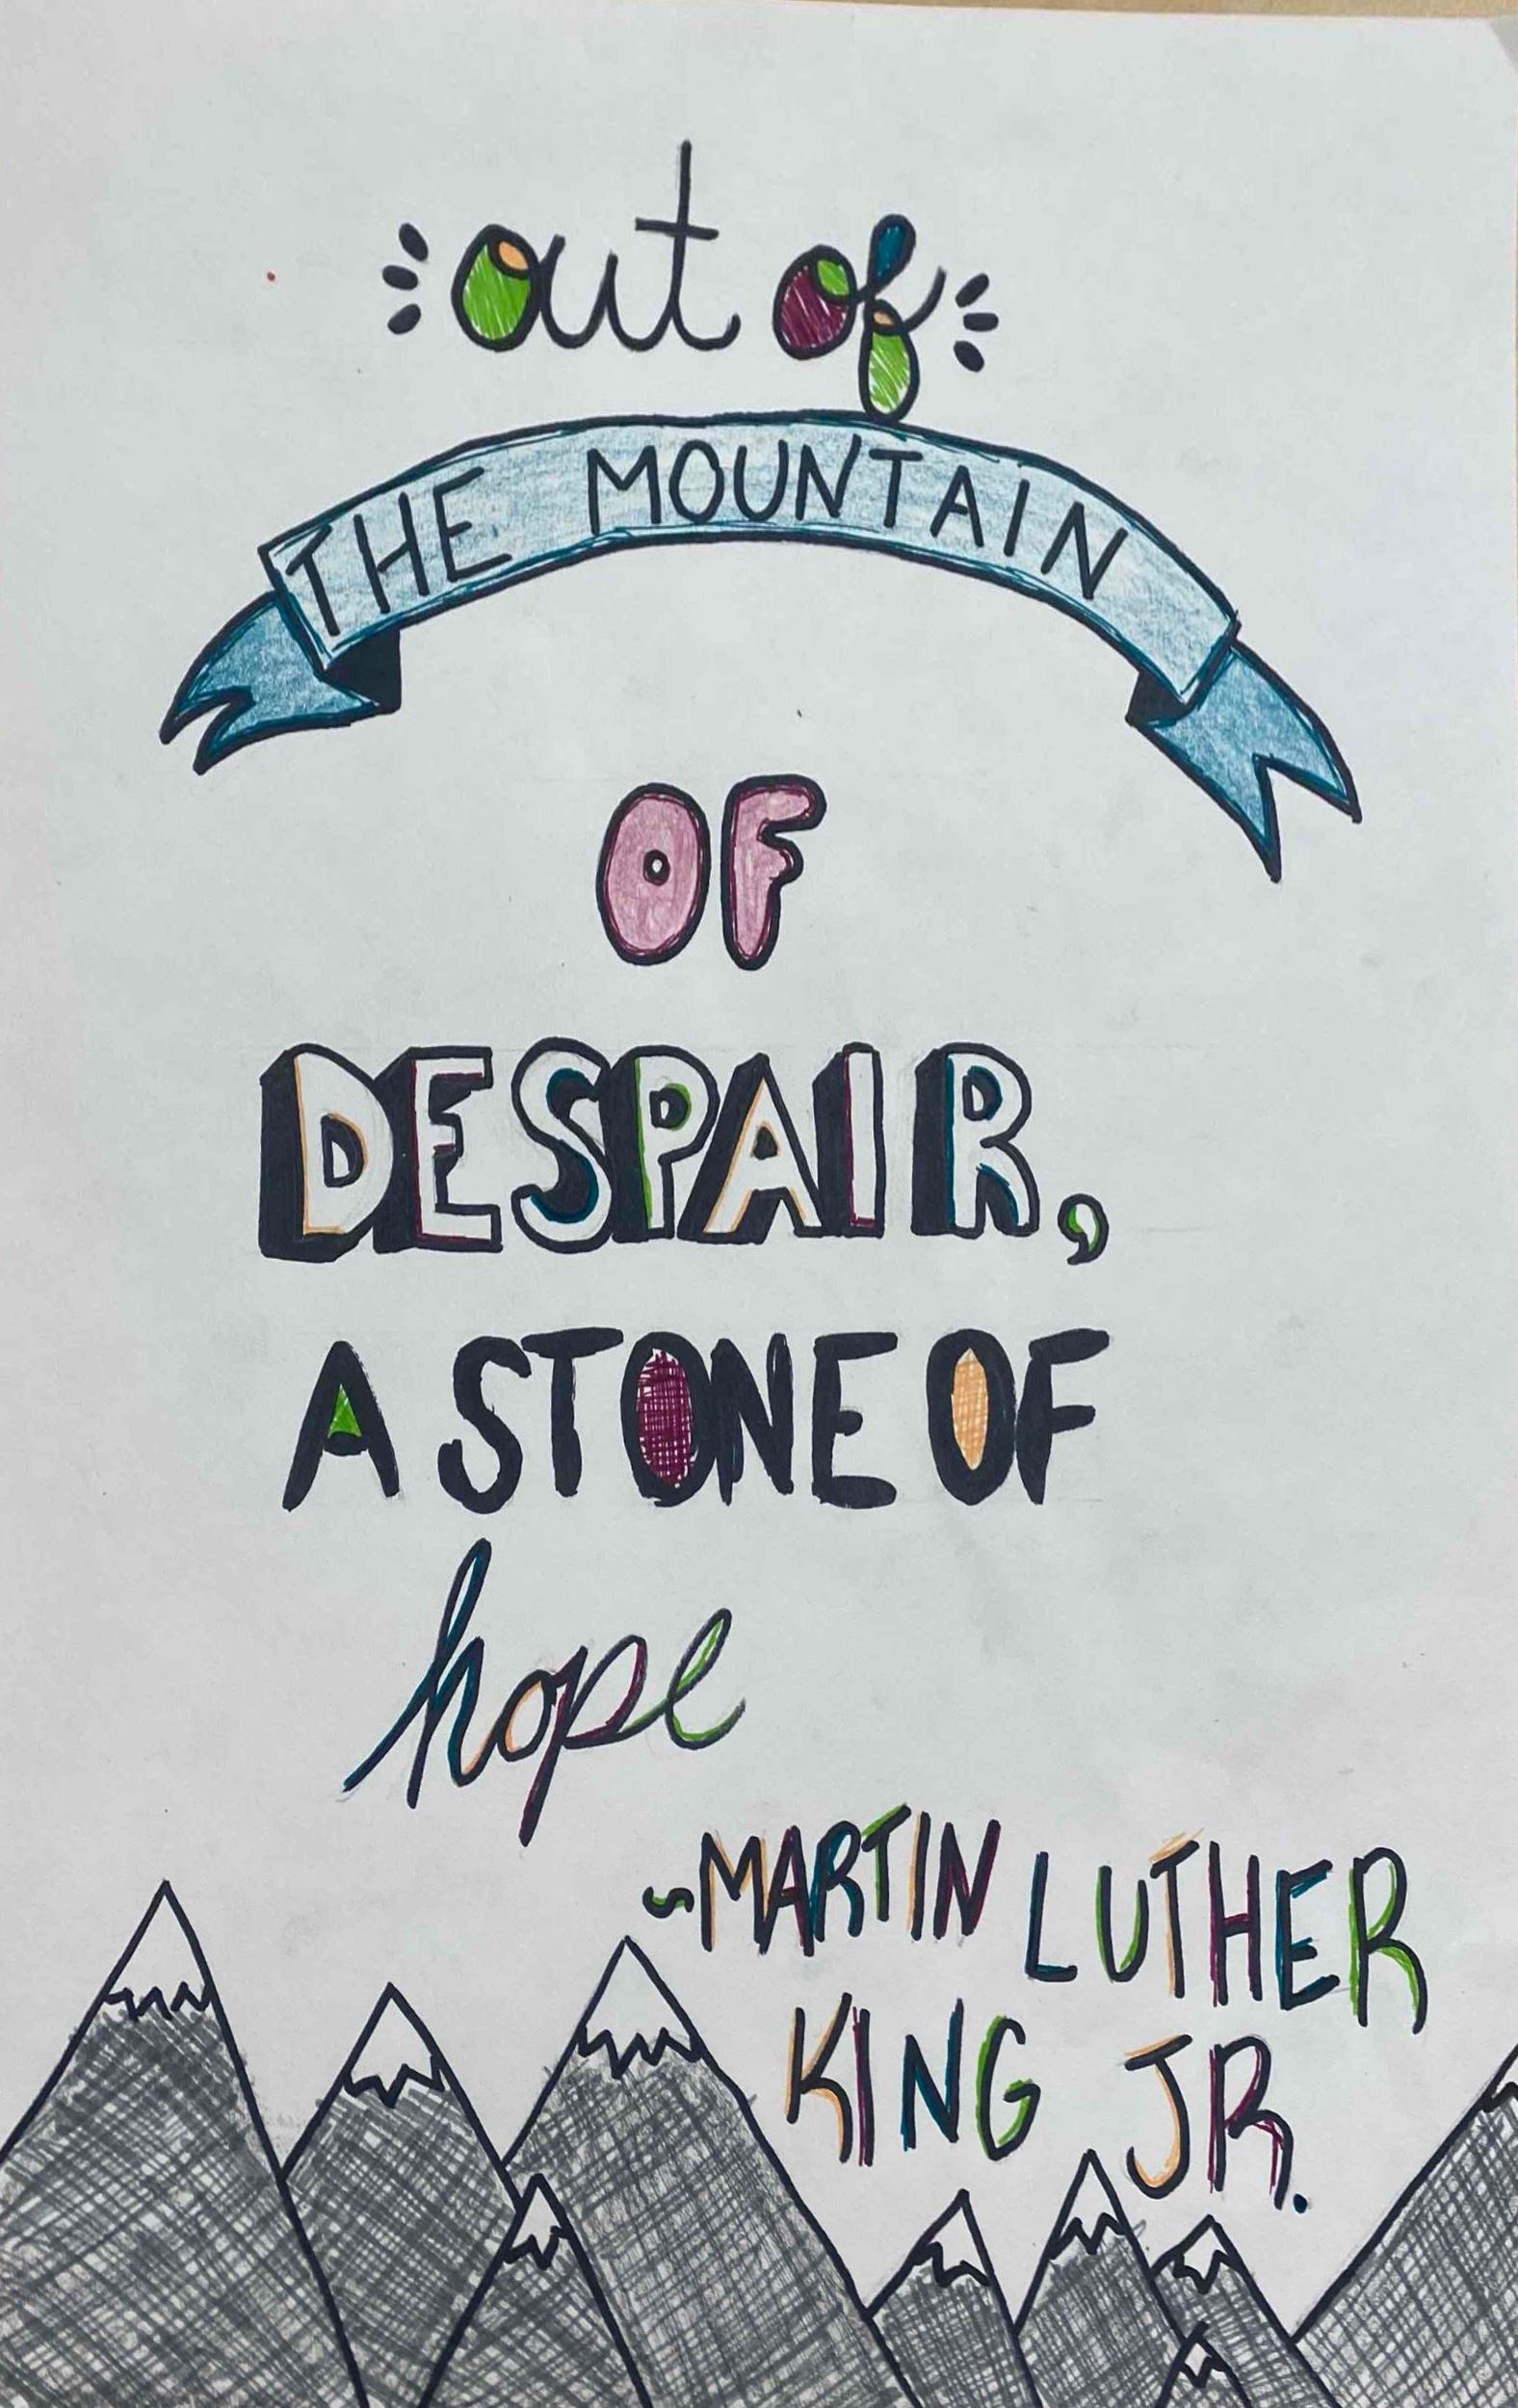 out of
THE MOUNTAIN
OF
DESPAIR,
A STONE OF
hope
~MARTIN LUTHER
KING JR.